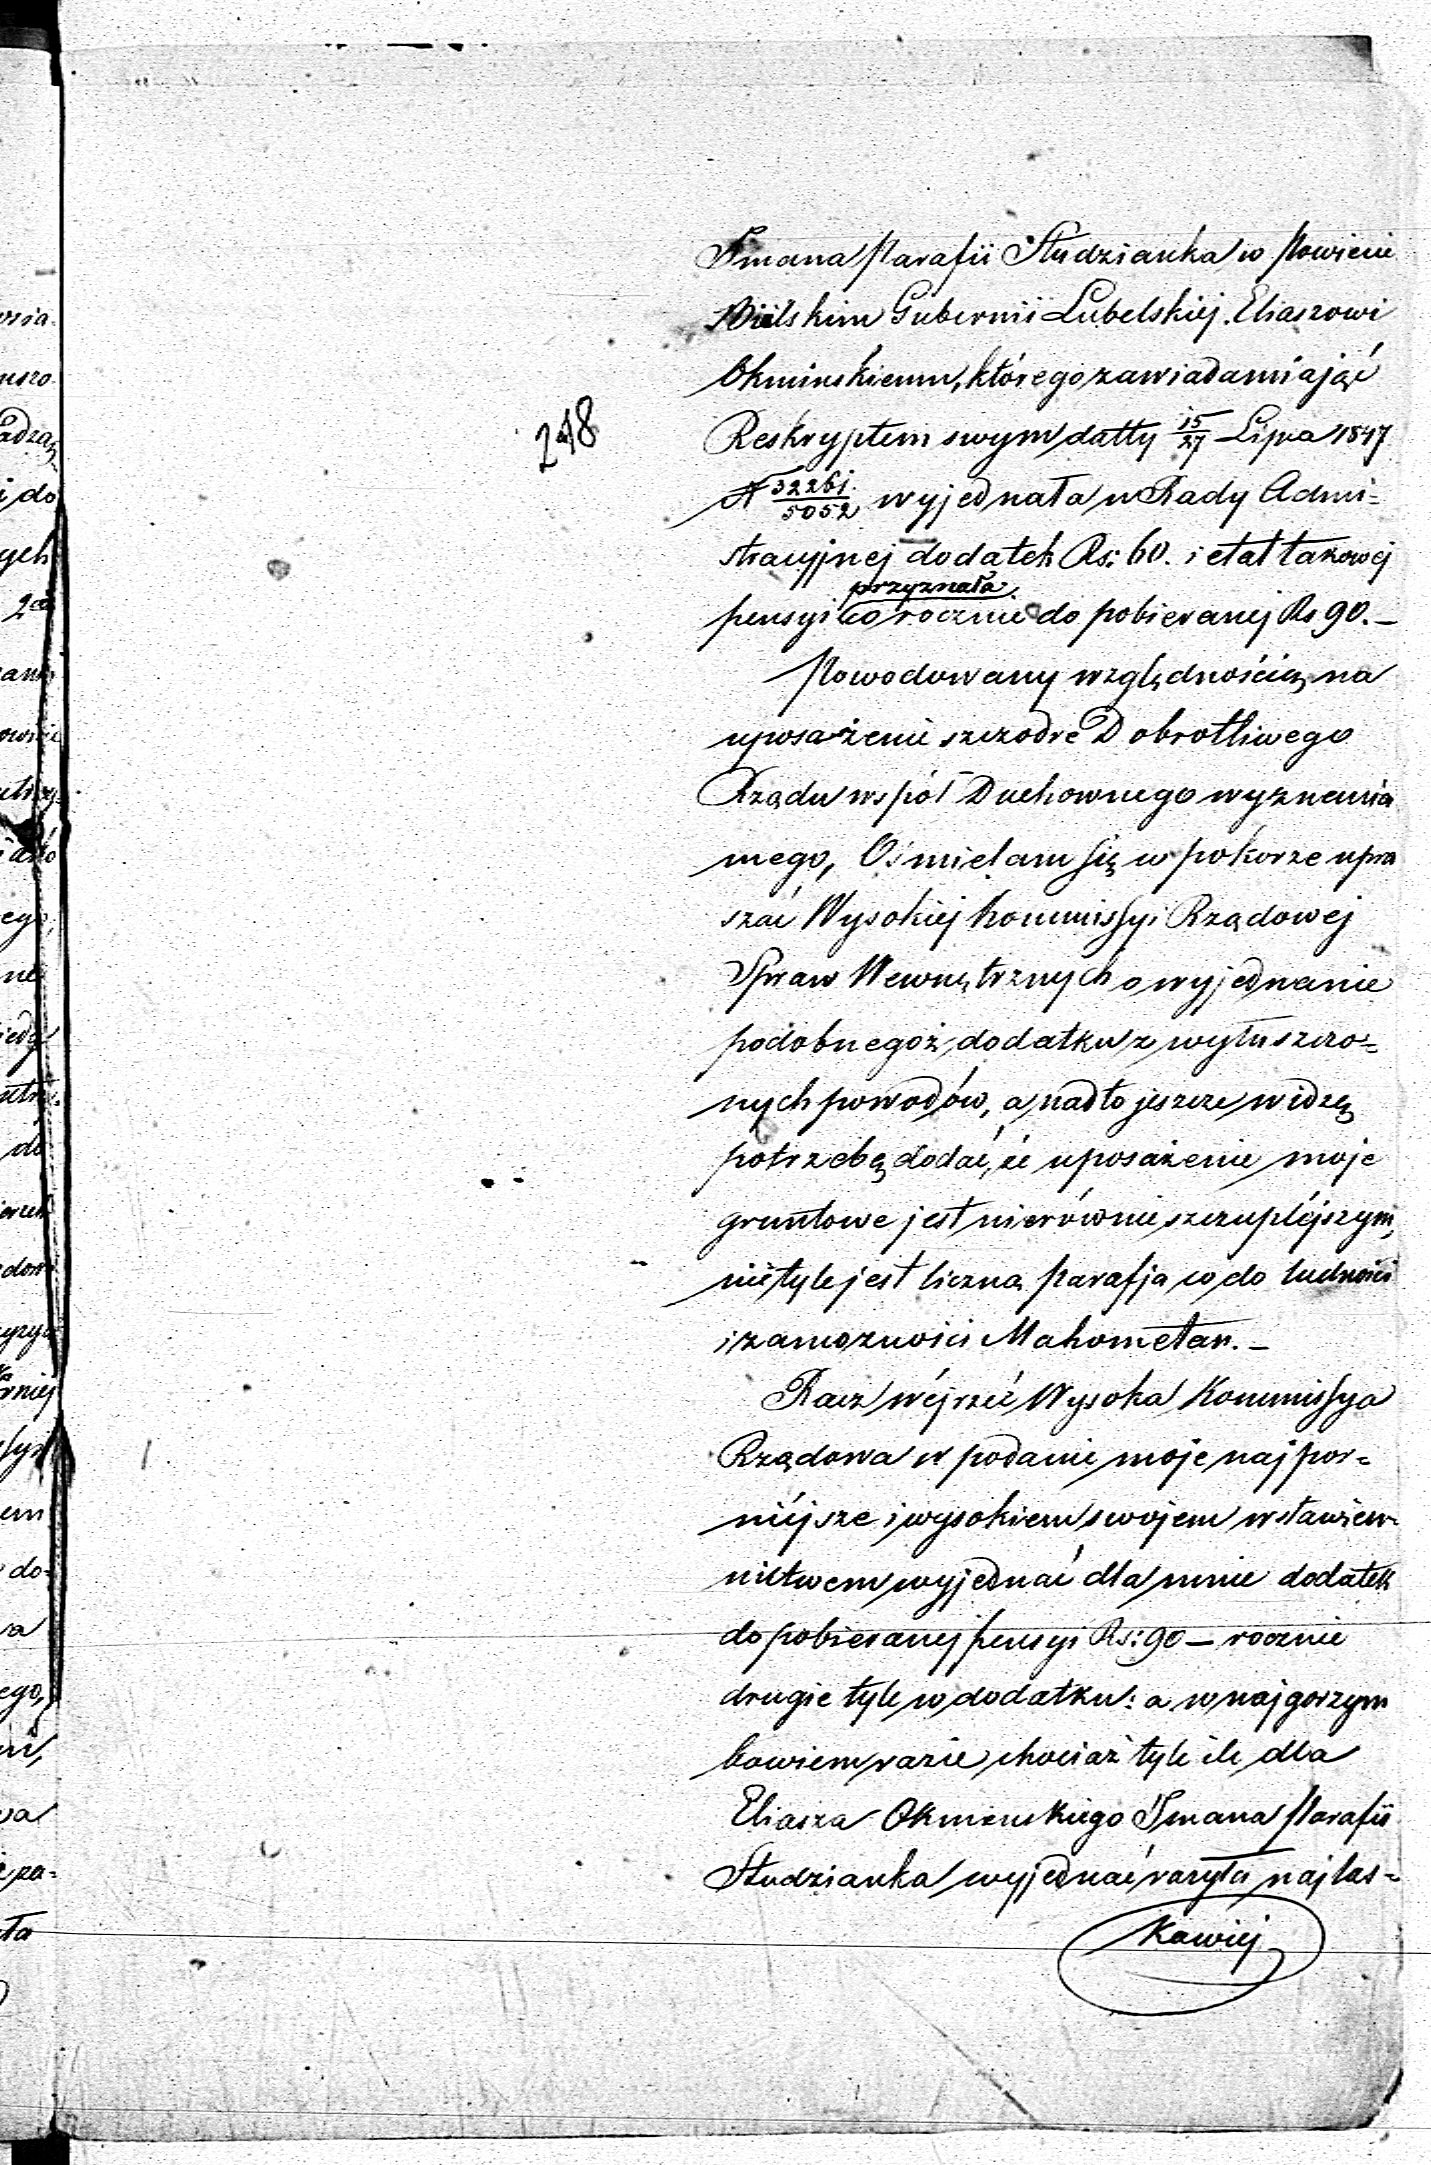 Imana Parafii Studzianka w Powiecie
Bialskim Gubernii Lubelskiej. Eliaszowi
Okmińskiemu, którego zawiadamiając
Reskryptem swym datty 15/27 Lipca 1847
N 32261/5052 wyjednała u Rady Admi=
stracyjnej dodatek Rs: 60. i etat takowej
przyznała
pensyi co rocznie do pobieranej Rs 90.—
Powodowany względnością na
uposażenie szczodre Dobrotliwego
Rządu współ Duchownego wyznania
mego, Ośmielam się w pokorze upra
szać Wysokiej Kommissyi Rządowej
Spraw Wewnętrznych o wyjednanie
podobnegoż dodatku z wyłuszczo=
nych powodów, a nadto jeszcze widzę
potrzebę dodać, że uposażenie moje
gruntowe jest nierównie szczuplejszym,
nietyle jest liczną parafja co do ludności
i zamożności Mahometan.—
Racz wejrzeć Wysoka Kommissya
Rządowa w podanie moje najpor=
niejsze i wysokiem swojem wstawien
nictwem wyjednać dla mnie dodatek
do pobieranej pensyi Rs: 90 — rocznie
drugie tyle w dodatku: a w najgorzym
bowiem razie chociaż tyle ile dla
Eliasza Okmenskiego Imana Parafii
Studzianka wyjednać raczyła najłas=
kawiej
248